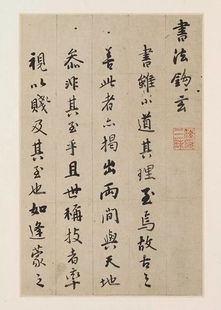 書法鉤玄
書雖小道其理至焉故古之
善此者亦揭出兩間與天地
參非其至乎且世稱技者率
視以賤及其至也如逢蒙之